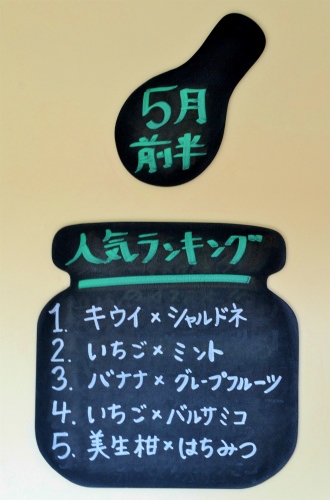 5月
前半
人気ランキング
1. キウイ×シャルドネ
2. いちご×ミント
3. バナナ×グレープフルーツ
4. いちご×バルサミコ
5. 美生柑×はちみつ